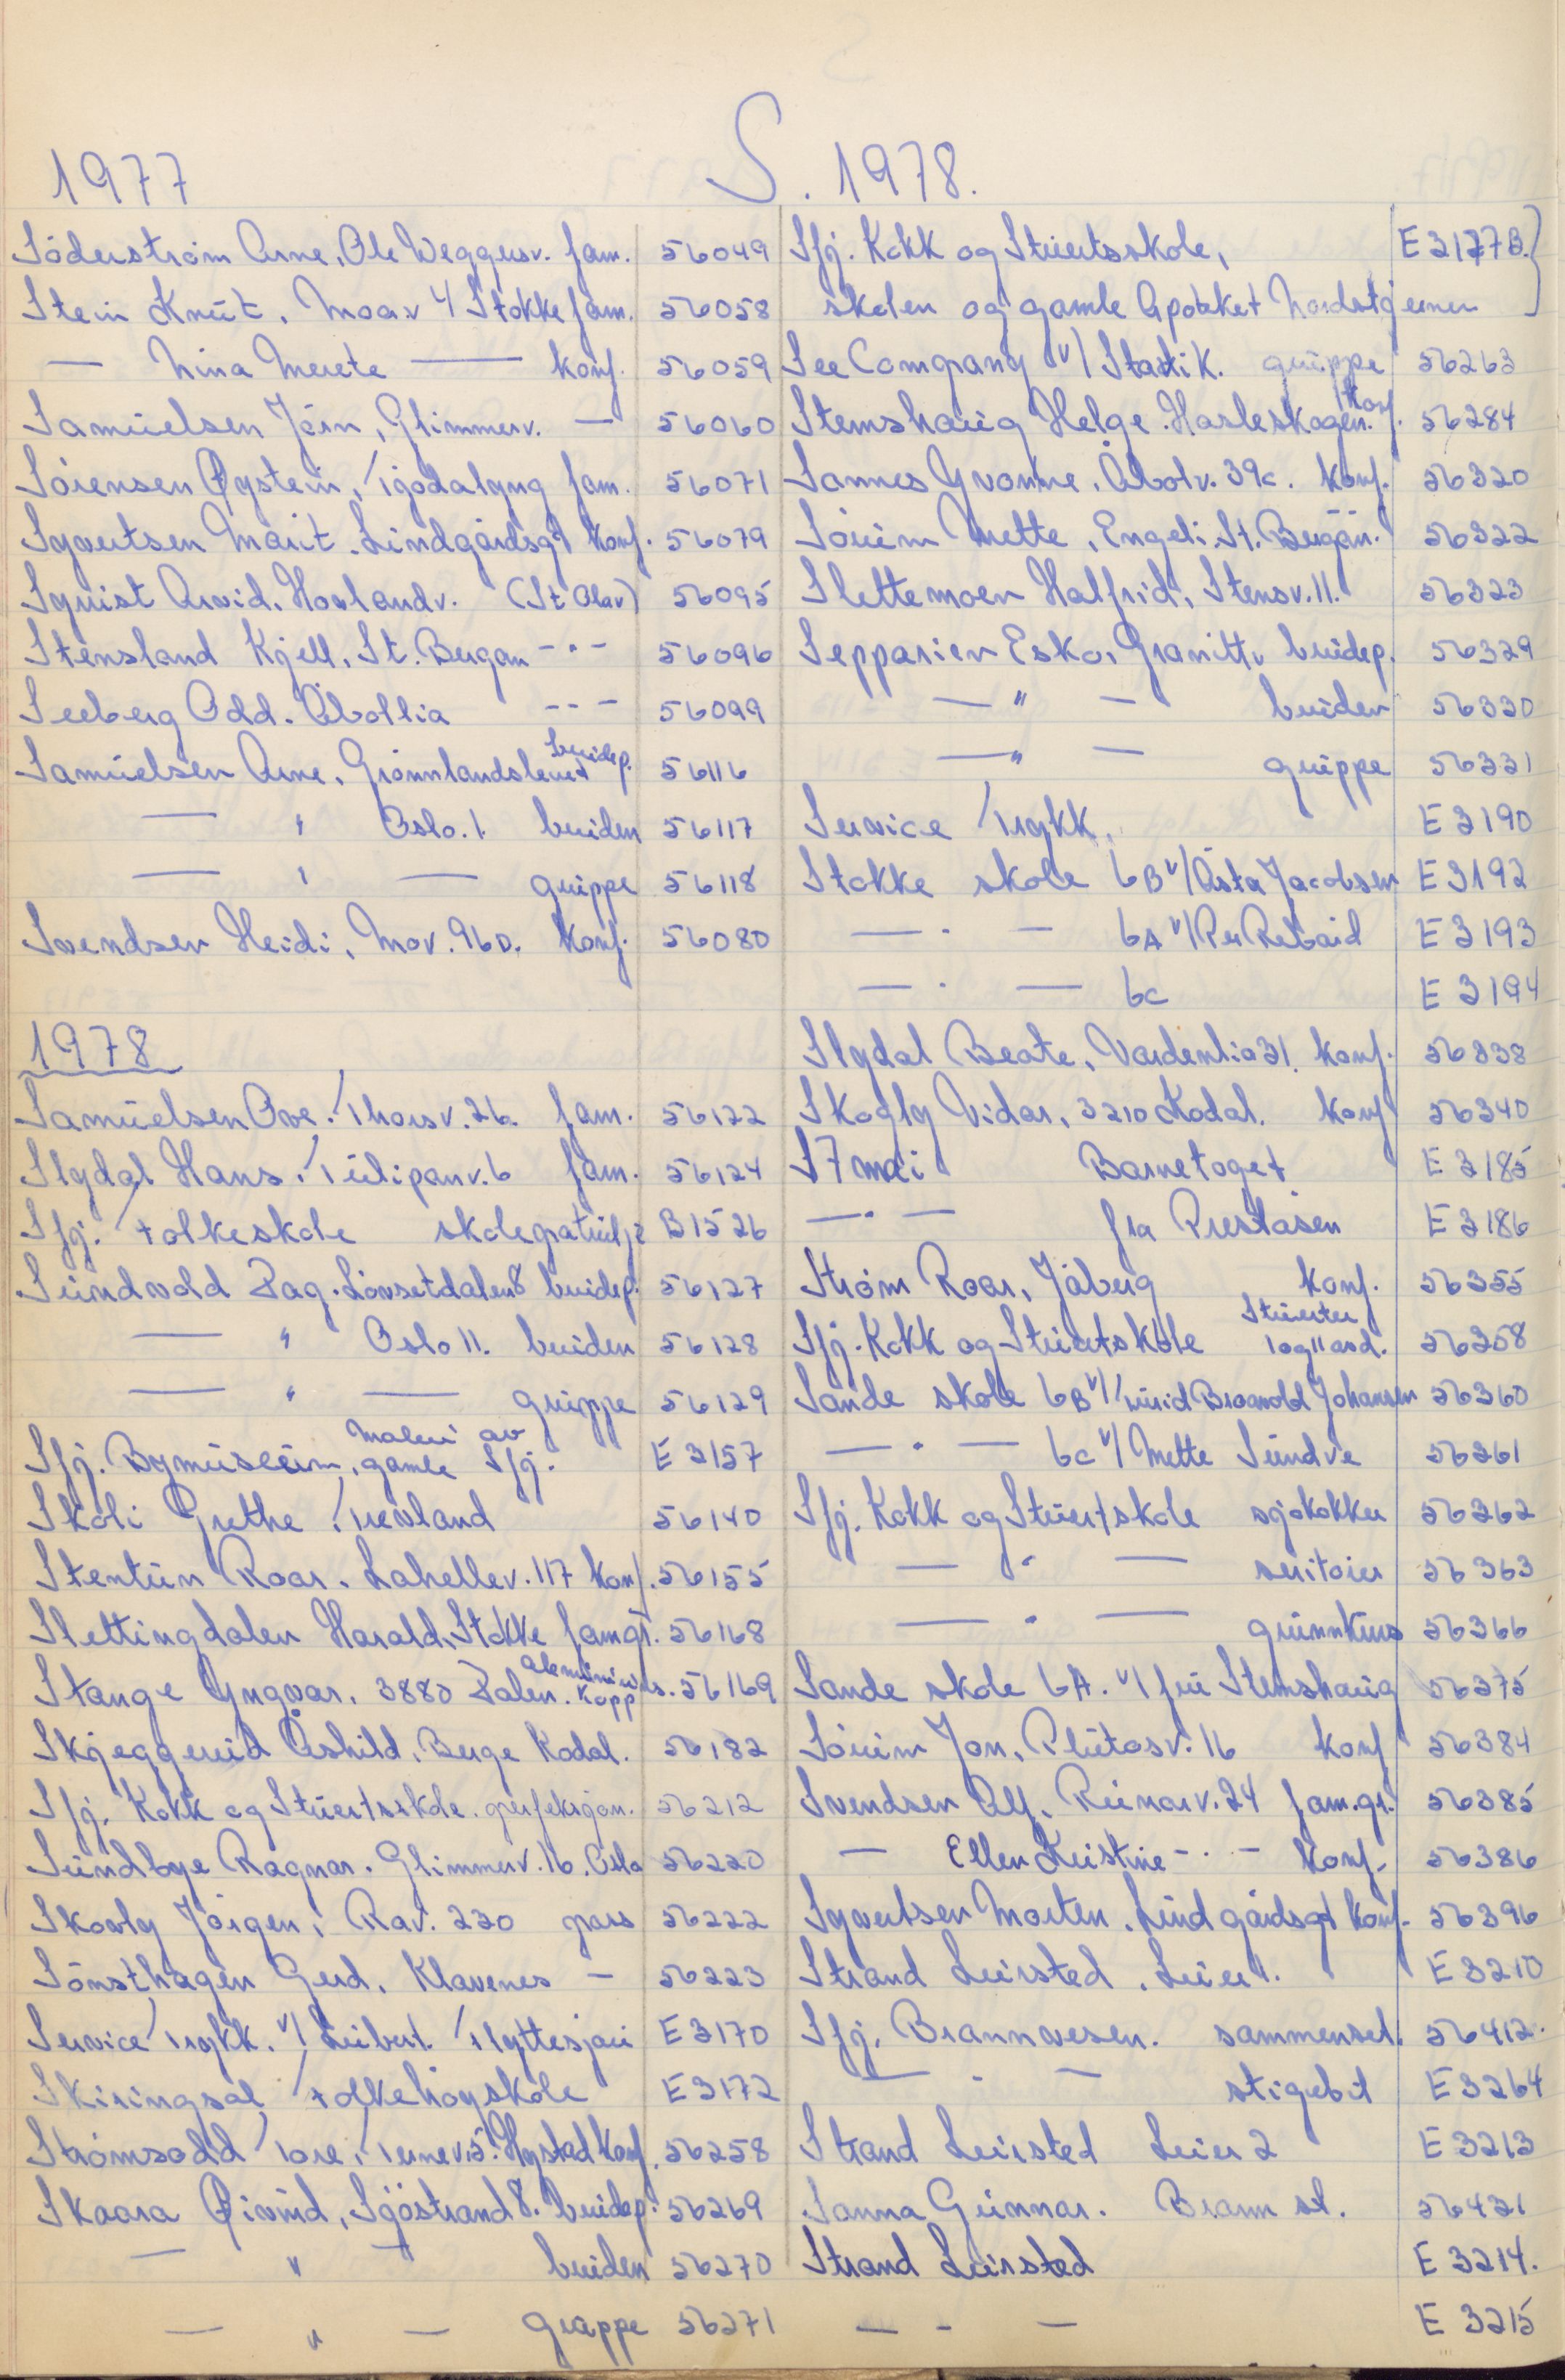 S. 1978.
1977
Söderstrøm Arne, Ole Weggersv. fam. 56049
Stein Knut, Moav 4 Stokke fam. 56058
— Nina Merete — konf. 56059
Samuelsen Jørn, Glimmerv. — 56060
Sörensen Øystein, Tjodalyng fam. 56071
Syvertsen Marit. Lindgårdsgt konf. 56079
Syrist Arvid, Hovlandv. (St Olav) 56095
Stensland Kjell, St. Bergan -"- 56096
Seeberg Odd. Åbollia --- 56099
Samuelsen Arne, Grønnlandsleiret brudep. 56116
— " Oslo. 1. bruden 56117
— " — gruppe 56118
Svendsen Heidi, Mov. 96 D. konf. 56080
1978
Samuelsen Ove. Thorsv. 26. fam. 56122
Slydal Hans. Tulipanv. 6 fam. 56124
Sfj. Folkeskole skolepatrulje B1526
Sundvold Dag. Lövsetdalen 8 brudep. 56127
— " Oslo 11. bruden 56128
— " — gruppe 56129
Sfj. Bymuseum, maleri av gamle Sfj. E 3157
Skoli Grethe Trevland 56140
Stentun Roar. Lahellev. 117 konf. 56155
Slettingdalen Harald, Stokke fam gr. 56168
Stange Yngvar. 3880 Dalen. kopp 56169
Skjeggerud Åshild, Berge Kodal. 56182
Sfj. Kokk og Stuertskole. perfeksjon. 56212
Sundbye Ragnar. Glimmerv. 16. Oslo 56220
Skovly Jörgen, Rav. 220 pass 56222
Sönsthagen Gerd. Klavenes — 56223
Service Trykk. v/ Leibert. Flyttesjau E 3170
Skiringsal Folkehøyskole E 3172
Strømsodd Tore, Ternev. 5. Hystad konf. 56258
Skaara Øivind, Sjöstrand 8. brudep. 56269
— " — bruden 56270
— " — gruppe 56271
Sfj. Kokk og Stuertsskole, E 3177 B.
skolen og gamle Apoteket Nordstjernen
See Company v/ Statik. gruppe 56263
Stemshaug Helge. Hasleskogen. konf. 56284
Sannes Yvonne. Åbolv. 39c. konf. 56320
Söuim Mette, Engeli. St. Bergan. 56322
Slettemoen Halfrid, Stensv. 11. 56323
Sepparien Esko, Granittv brudep. 56329
— " — bruden 56330
— " — gruppe 56331
Service Trykk. E 3190
Stokke skole 6B v/ Åsta Jacobsen E 3192
— " — 6A v/ Per Rebård E 3193
— " — 6c E 3194
Slydal Beate, Vardenlia 31. konf. 56338
Skogly Vidar, 3210 Kodal. konf 56340
17 mai Barnetoget E 3185
— " — fra Preståsen E 3186
Strøm Roar, Jåberg konf. 56355
Sfj. Kokk og Stuertskole Stuerter 1 og 11 avd. 56358
Sande skole 6B v/ Turid Braavold Johansen 56360
— " — 6c v/ Mette Sundve 56361
Sfj. Kokk og Stuertskole sjøkokker 56362
— " — servitører 56363
— " — grunnkurs 56366
Sande skole 6A. v/ fru Stemshaug 56375
Söuim Jon, Plutosv. 16 konf 56384
Svendsen Alf. Runarv. 24 fam.gr. 56385
— Ellen Kristine -"- konf. 56386
Syvertsen Morten. Lindgårdsgt konf. 56396
Strand Leirsted. Leier 1. E 3210
Sfj. Brannvesen. sammensel. 56412.
— " — stigebil E 3264
Strand Leirsted Leier 2 E 3213
Sanna Gunnar. Brann st. 56421
Strand Leirsted E 3214.
— - — E 3215